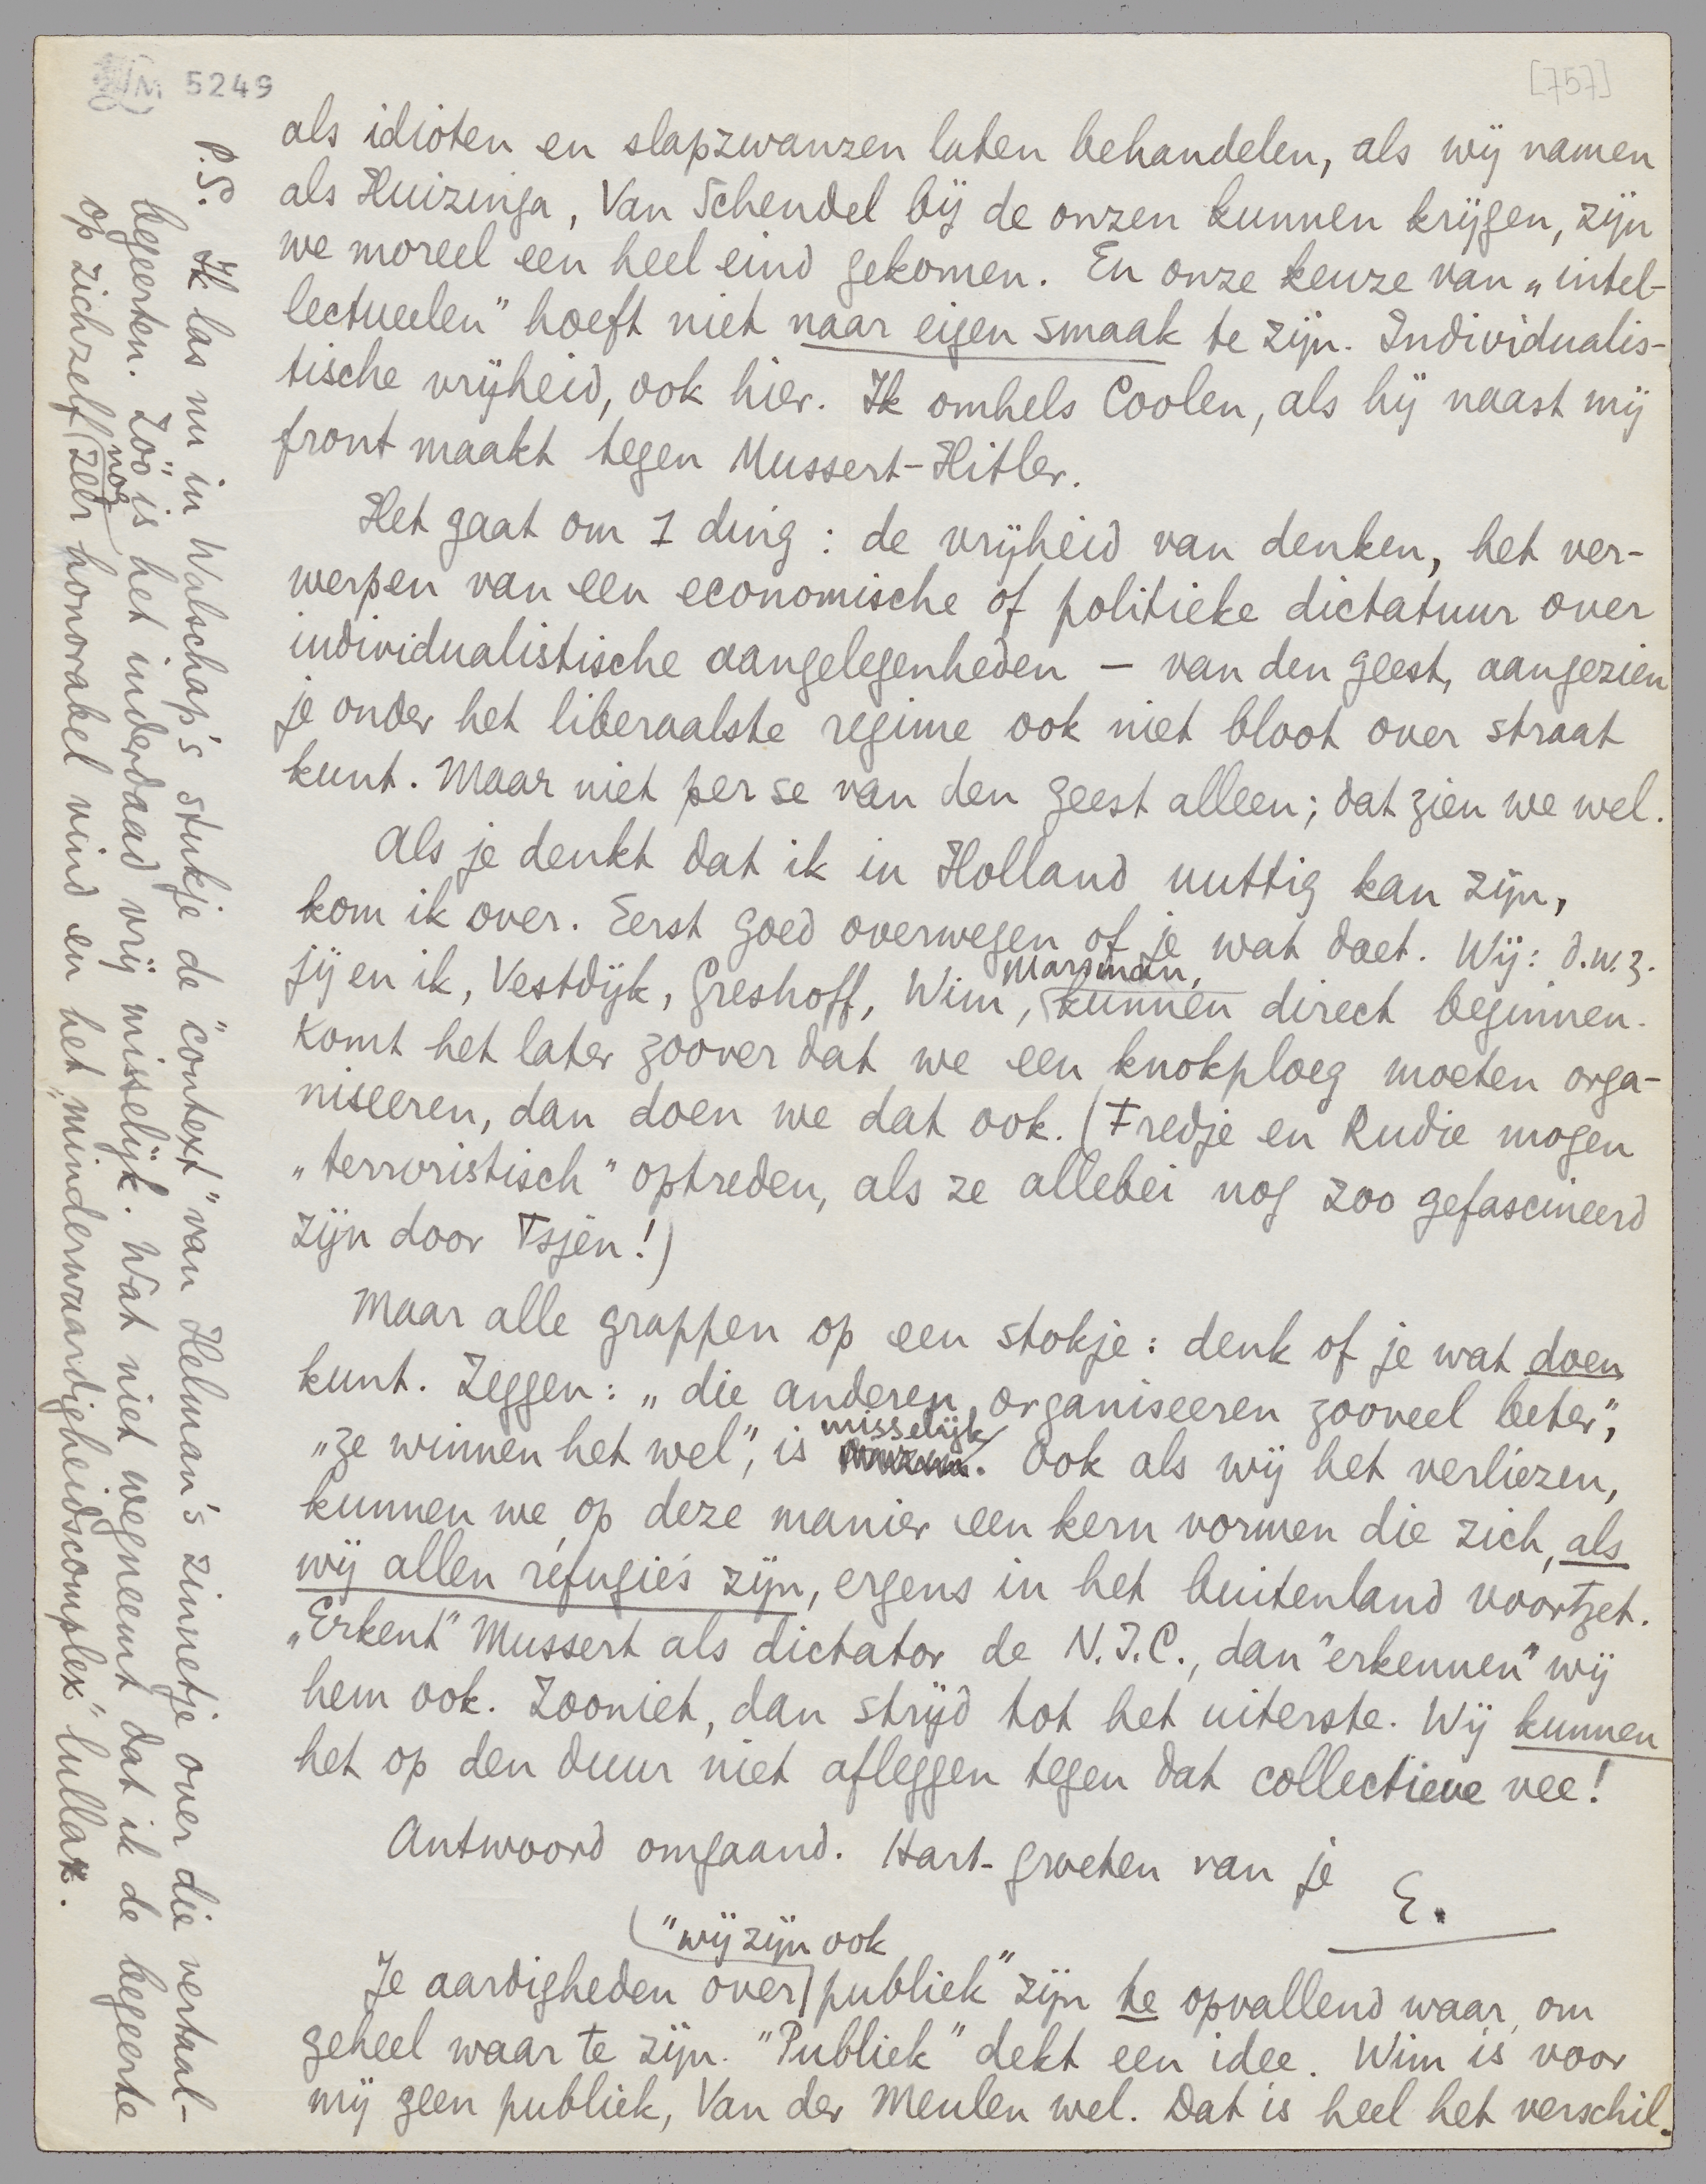 LM 5249
[757]
als idioten en slapzwanzen laten behandelen, als wij namen
als Huizinga, Van Schendel bij de onzen kunnen krijgen, zijn
we moreel een heel eind gekomen. En onze keuze van „intel-
lectueelen” hoeft niet naar eigen smaak te zijn. Individualis-
tische vrijheid, ook hier. Ik omhels Coolen, als hij naast mij
front maakt tegen Mussert-Hitler.
Het gaat om 1 ding: de vrijheid van denken, het ver-
werpen van een economische of politieke dictatuur over
individualistische aangelegenheden – van den geest, aangezien
je onder het liberaalste regime ook niet bloot over straat
kunt. Maar niet per se van den geest alleen; dat zien we wel.
Als je denkt dat ik in Holland nuttig kan zijn,
kom ik over. Eerst goed overwegen of je wat doet. Wij: d.w.z.
jij en ik, Vestdijk, Greshoff, Wim, Marsman, kunnen direct beginnen.
Komt het later zoover dat we een knokploeg moeten orga-
niseeren, dan doen we dat ook. (Fredje en Rudie mogen
„terroristisch” optreden, als ze allebei nog zoo gefascineerd
zijn door Tsjen!)
Maar alle grappen op een stokje: denk of je wat doen
kunt. Zeggen: „die anderen organiseeren zooveel beter”,
„ze winnen het wel”, is misselijk. Ook als wij het verliezen,
kunnen we op deze manier een kern vormen die zich, als
wij allen réfugiés zijn, ergens in het buitenland voortzet.
„Erkent” Mussert als dictator de N.I.C., dan "erkennen" wij
hem ook. Zooniet, dan strijd tot het uiterste. Wij kunnen
het op den duur niet afleggen tegen dat collectieve vee!
Antwoord omgaand. Hart. groeten van je
E.
Je aardigheden over "wij zijn ook publiek" zijn te opvallend waar, om
geheel waar te zijn. "Publiek" dekt een idee. Wim is voor
mij geen publiek, Van der Meulen wel. Dat is heel het verschil.
P.S. Ik las nu in Walschap's stukje de "context" van Helman's zinnetje over die vertaal-
begeerten. Zóó is het inderdaad vrij misselijk. Wat niet wegneemt dat ik de begeerte
op zichzelf nog zeer honorabel vind en het „minderwaardigheidscomplex" lullax.